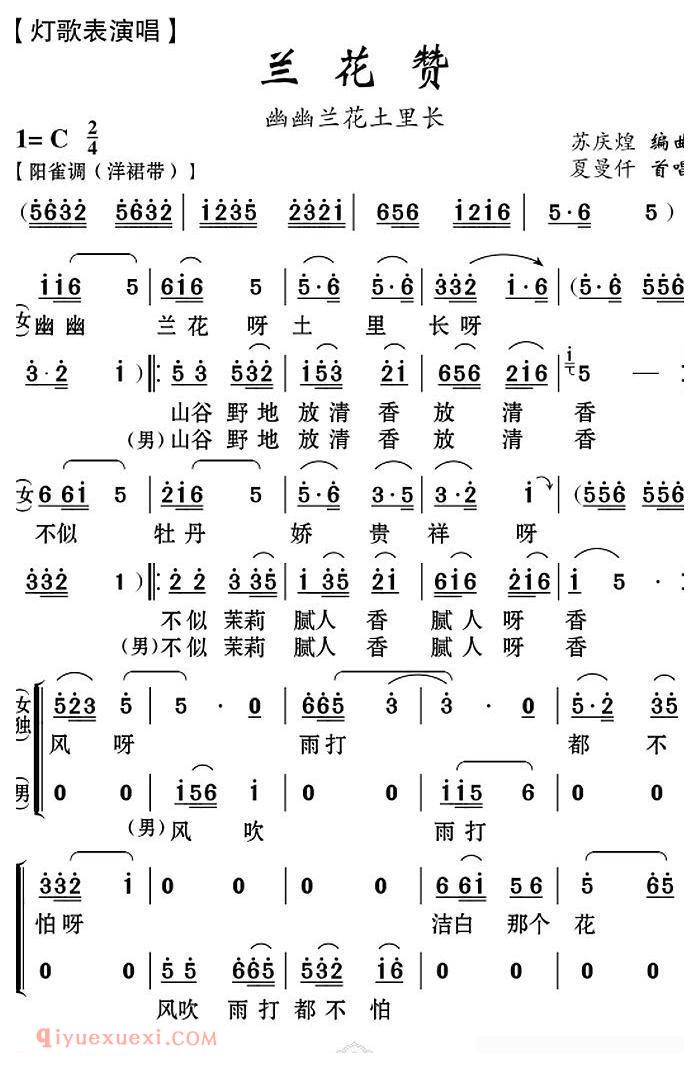 【灯歌表演唱】
兰 花 赞
幽幽兰花土里长
1= C 2/4
苏庆煌 编曲
【阳雀调（洋裙带）】
夏曼仟 首唱
(5632 5632 | 1235 2321 | 656 1216 | 5·6 5 )
116 5 | 616 5 | 5·6 5·6 | 332 1·6 | (5·6 556
(女)幽幽 兰花 呀 土 里 长呀
3·2 1 )‖: 5 3 532 | 153 21 | 656 216 | 5 —
山谷 野地 放清 香 放 清 香
(男)山谷 野地 放清 香 放 清 香
(女) 6 61 5 | 216 5 | 5·6 3·5 | 3·2 1 | (556 556
不似 牡丹 娇 贵 祥 呀
332 1 )‖: 2 2 3 35 | 1 35 21 | 616 216 | 1 5 ·
不似 茉莉 腻人 香 腻人 呀 香
(男)不似 茉莉 腻人 香 腻人 呀 香
(女独) 523 5 | 5 · 0 | 665 3 | 3 · 0 | 5·2 35
风 呀 雨打 都 不
(男) 0 0 | 156 1 | 0 0 | 115 6 | 0 0
(男)风 吹 雨打
332 1 | 0 0 | 0 0 | 6 61 56 | 5 65
怕呀 洁白 那个 花
0 0 | 5 5 665 | 532 16 | 0 0 | 0 0
风吹 雨打 都不 怕
qiyuexuexi.com